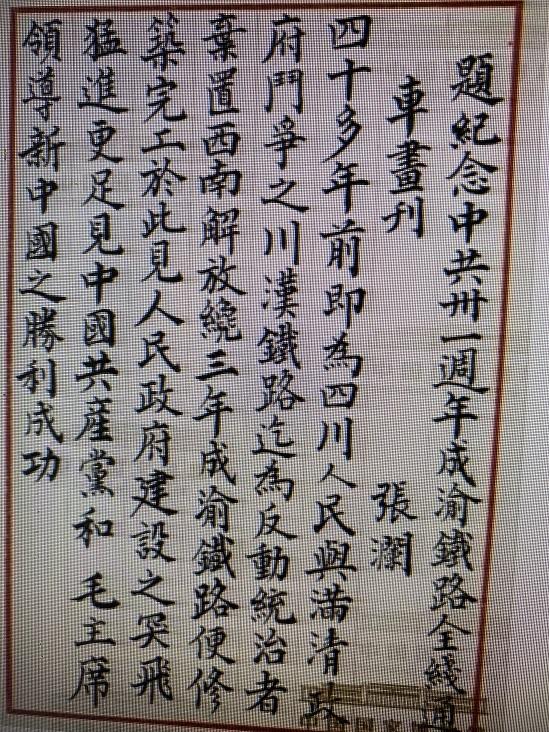 題紀念中共卅一週年成渝鐵路全綫通
車畫刊
張瀾
四十多年前即為四川人民與滿清政
府鬥爭之川漢鐵路迄為反動統治者
棄置西南解放纔三年成渝鐵路便修
築完工於此見人民政府建設之突飛
猛進更足見中國共產黨和 毛主席
領導新中國之勝利成功